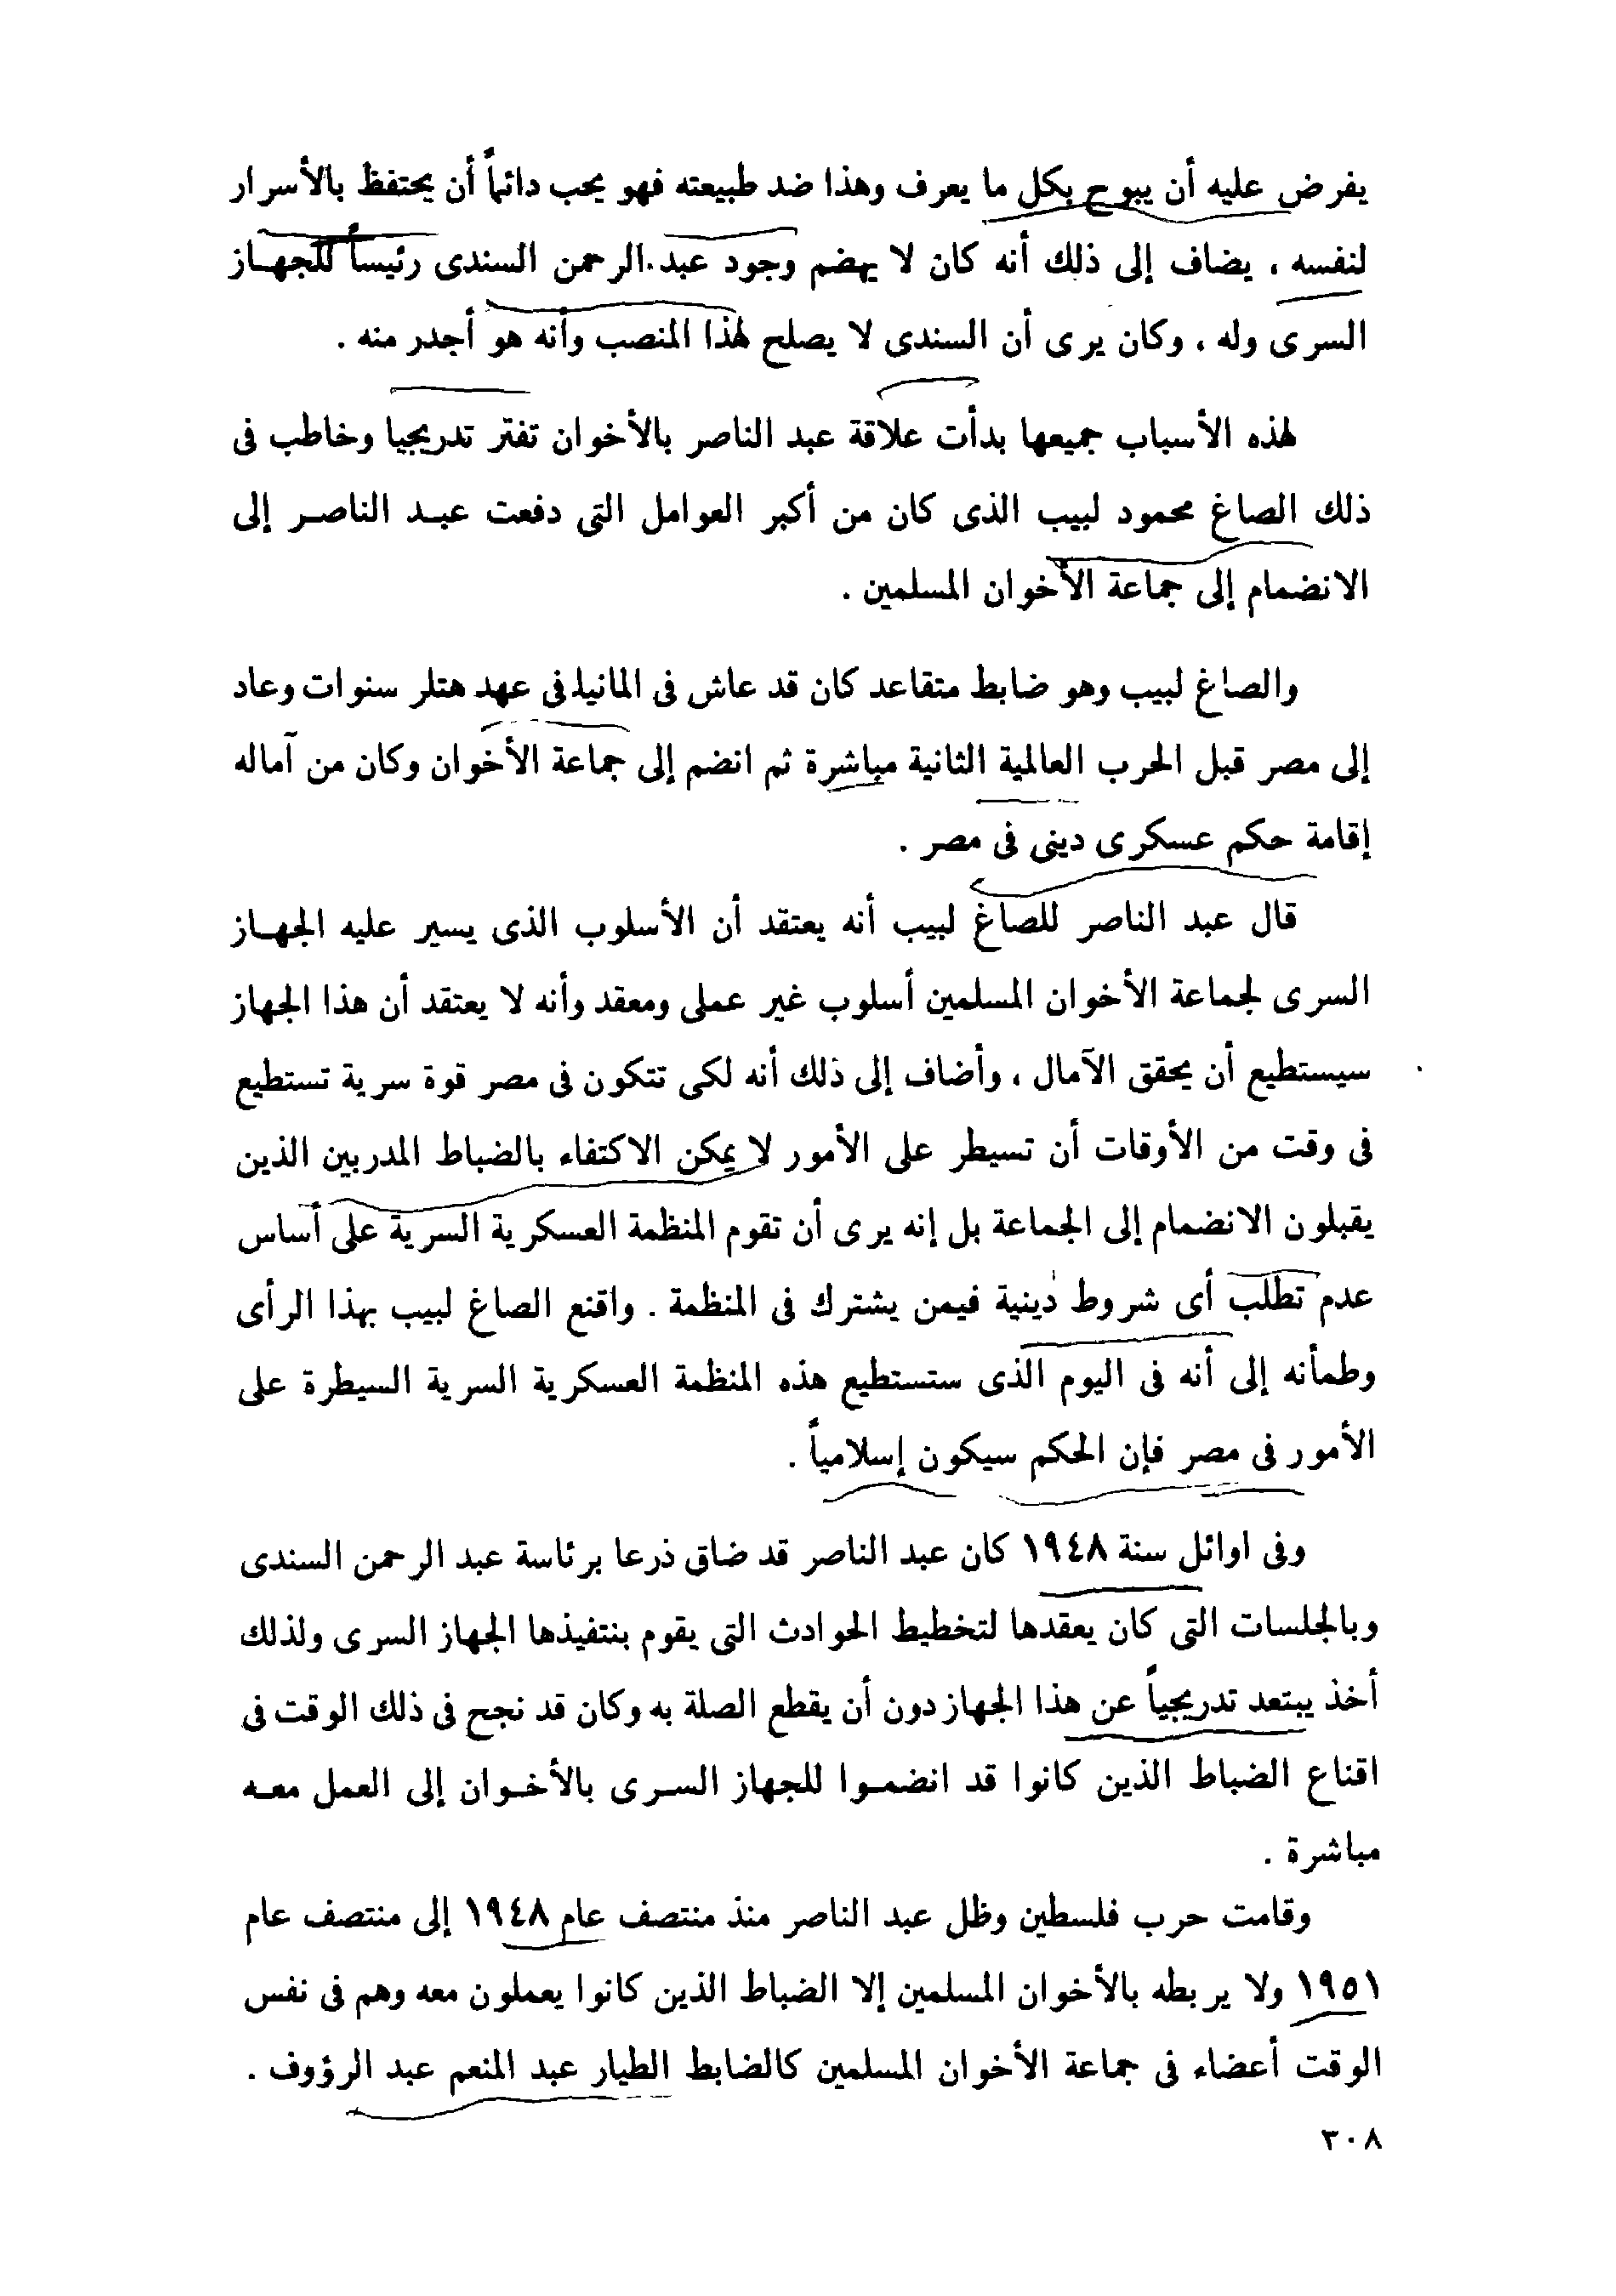 يفرض عليه أن يبوح بكل ما يعرف وهذا ضد طبيعته فهو يحب دائماً أن يحتفظ بالأسرار
لنفسه ، يضاف إلى ذلك أنه كان لا يهضم وجود عبد الرحمن السندى رئيساً للجهاز
السرى وله ، وكان يرى أن السندى لا يصلح لهذا المنصب وأنه هو أجدر منه .
لهذه الأسباب جميعها بدأت علاقة عبد الناصر بالأخوان تفتر تدريجيا وخاطب فى
ذلك الصاغ محمود لبيب الذى كان من أكبر العوامل التى دفعت عبد الناصر إلى
الانضمام إلى جماعة الأخوان المسلمين .
والصاغ لبيب وهو ضابط متقاعد كان قد عاش فى المانيا فى عهد هتلر سنوات وعاد
إلى مصر قبل الحرب العالمية الثانية مباشرة ثم انضم إلى جماعة الأخوان وكان من آماله
إقامة حكم عسكرى دينى فى مصر .
قال عبد الناصر للصاغ لبيب أنه يعتقد أن الأسلوب الذى يسير عليه الجهاز
السرى لجماعة الأخوان المسلمين أسلوب غير عملى ومعقد وأنه لا يعتقد أن هذا الجهاز
سيستطيع أن يحقق الآمال ، وأضاف إلى ذلك أنه لكى تتكون فى مصر قوة سرية تستطيع
فى وقت من الأوقات أن تسيطر على الأمور لا يمكن الاكتفاء بالضباط المدربين الذين
يقبلون الانضمام إلى الجماعة بل إنه يرى أن تقوم المنظمة العسكرية السرية على أساس
عدم تطلب أى شروط دينية فيمن يشترك فى المنظمة . واقنع الصاغ لبيب بهذا الرأى
وطمأنه إلى أنه فى اليوم الذى ستستطيع هذه المنظمة العسكرية السرية السيطرة على
الأمور فى مصر فإن الحكم سيكون إسلامياً .
وفى اوائل سنة ١٩٤٨ كان عبد الناصر قد ضاق ذرعا برئاسة عبد الرحمن السندى
وبالجلسات التى كان يعقدها لتخطيط الحوادث التى يقوم بنتفيذها الجهاز السرى ولذلك
أخذ يبتعد تدريجياً عن هذا الجهاز دون أن يقطع الصلة به وكان قد نجح فى ذلك الوقت فى
اقناع الضباط الذين كانوا قد انضموا للجهاز السرى بالأخوان إلى العمل معه
مباشرة .
وقامت حرب فلسطين وظل عبد الناصر منذ منتصف عام ١٩٤٨ إلى منتصف عام
١٩٥١ ولا يربطه بالأخوان المسلمين إلا الضباط الذين كانوا يعملون معه وهم فى نفس
الوقت أعضاء فى جماعة الأخوان المسلمين كالضابط الطيار عبد المنعم عبد الرؤوف .
٣٠٨